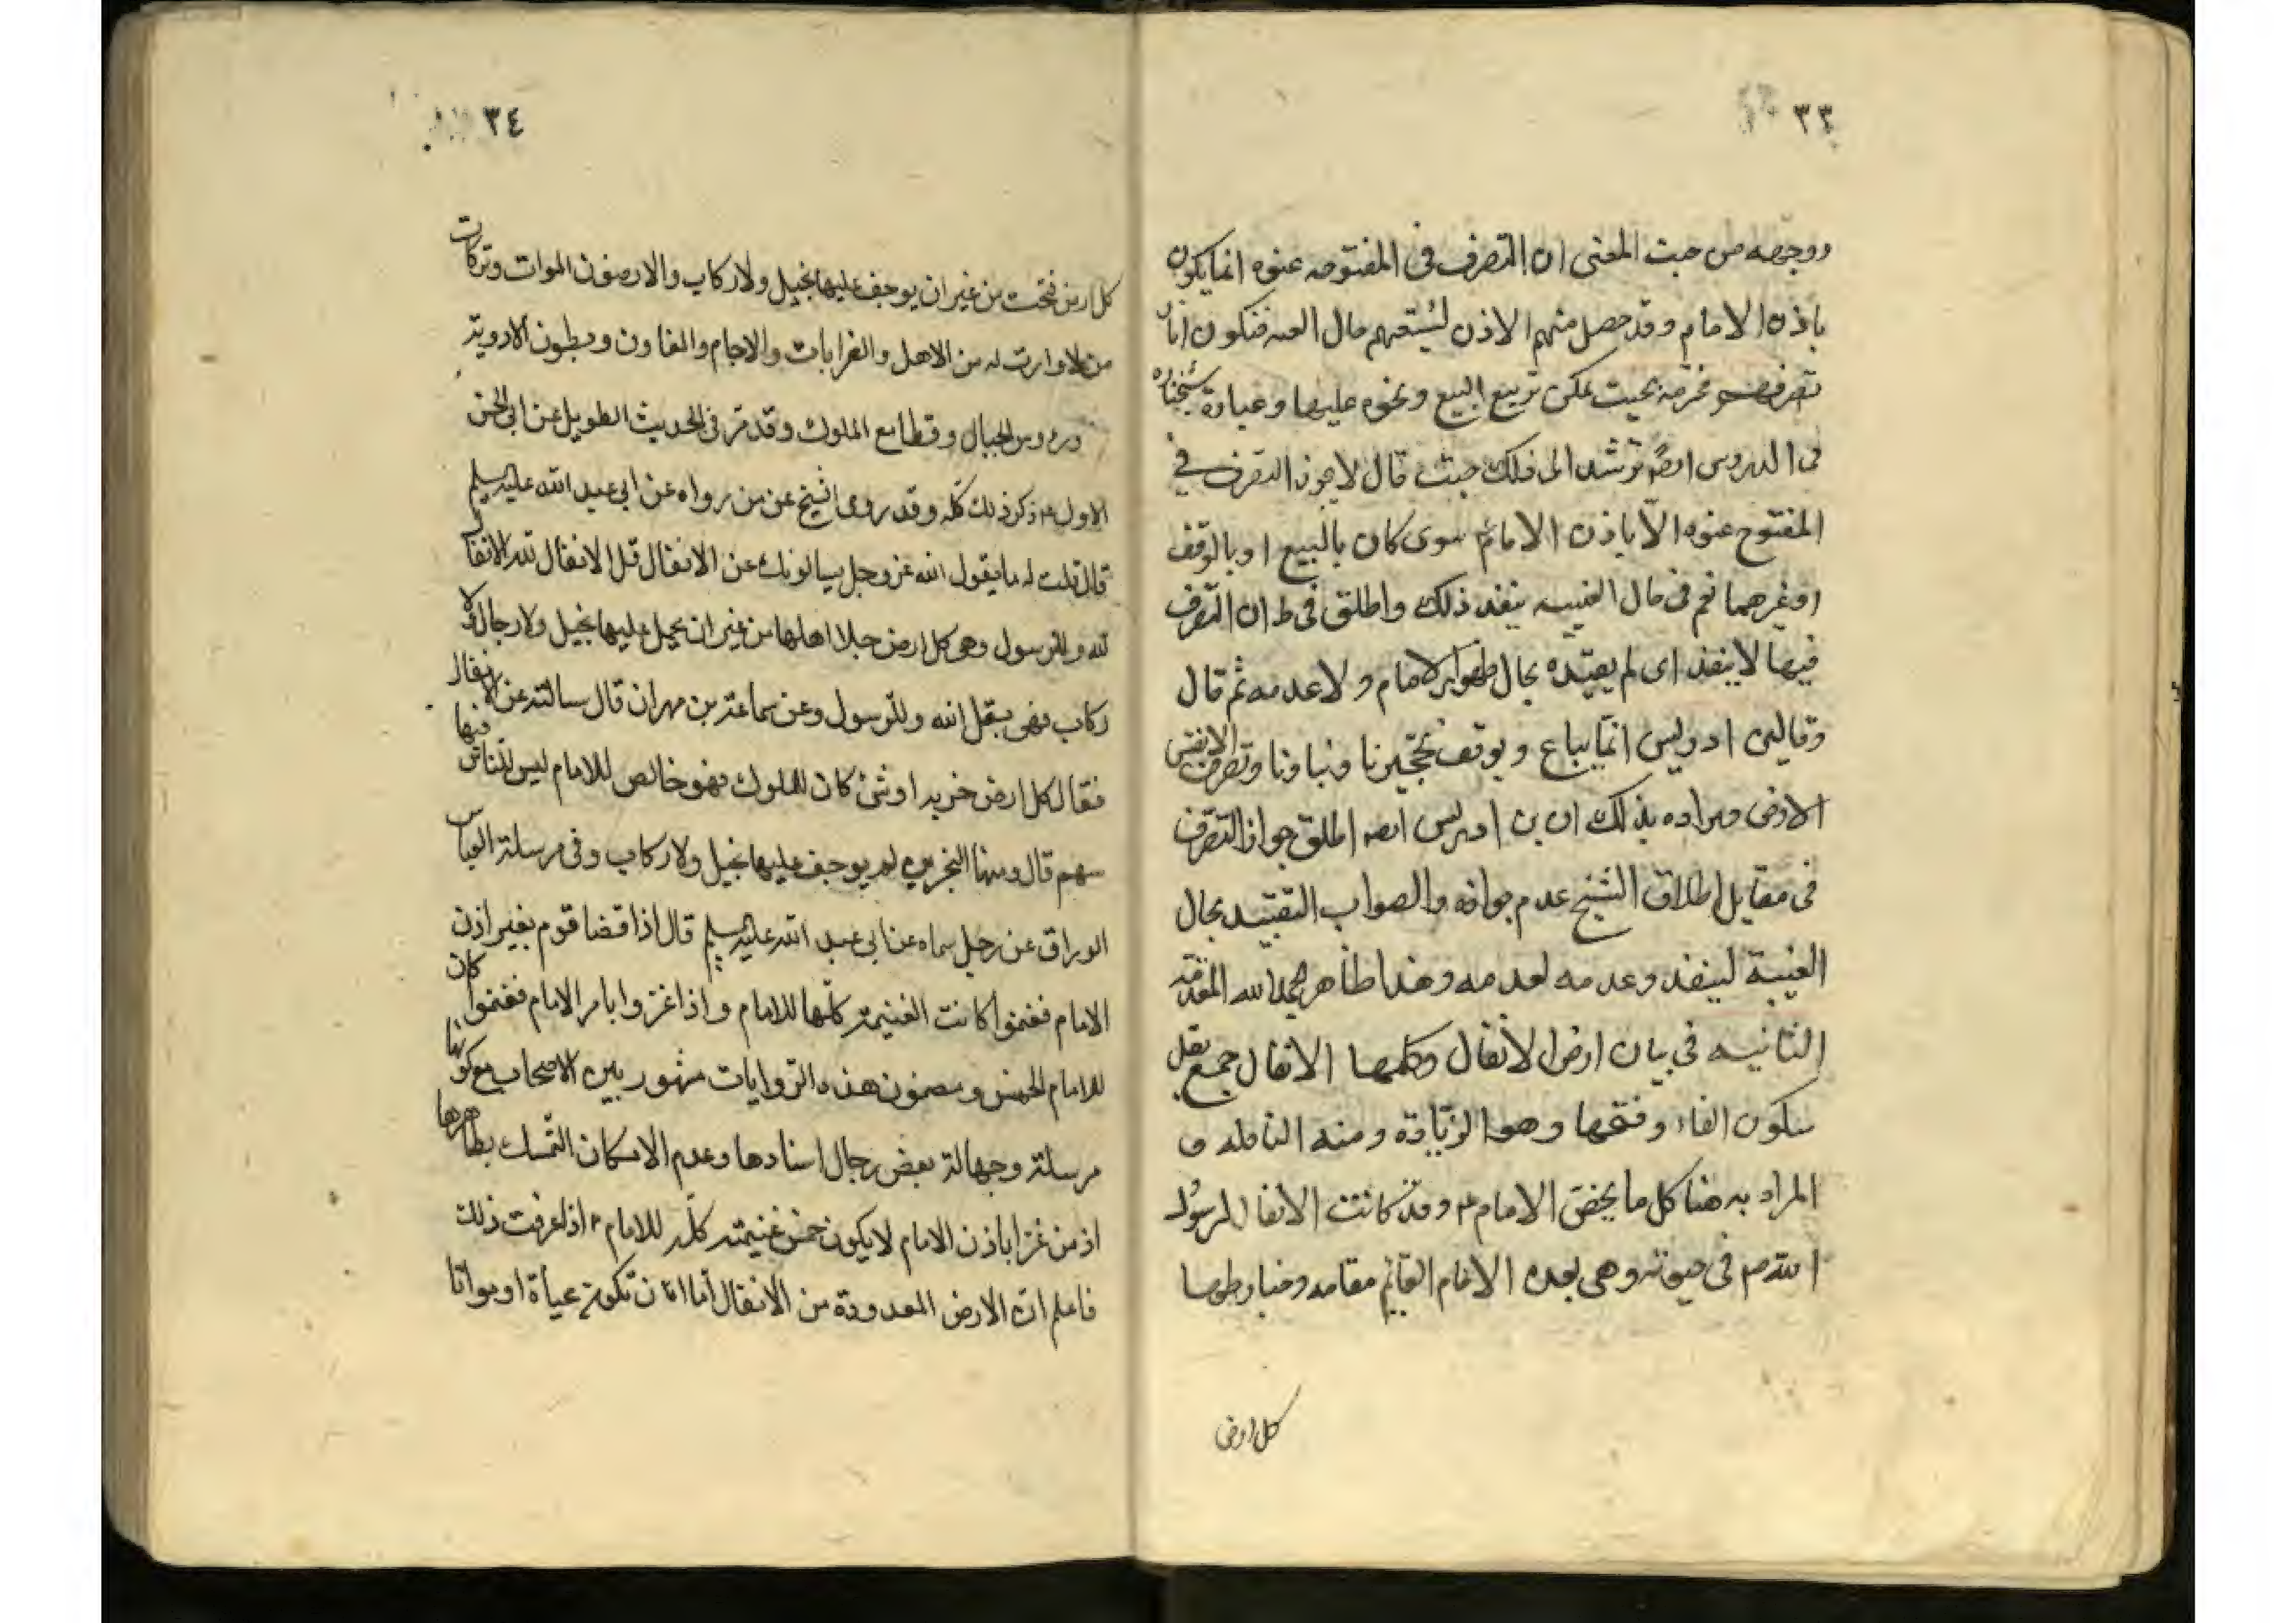 ٣٣
ووجهه من حيث المعنى ان التصرف فى المفتوحه عنوه انما يكون
باذن الامام و قد حصل منهم الاذن لشيعتهم حال الغيبه فتكون اثار
تصرفهم محترمه بحيث يمكن ترتيع البيع ونحوه عليها وعبارة شيخنا
فى الدروس ترشد الى ذلك حيث قال لا يجوز التصرف فى
المفتوح عنوه الا باذن الامام سوى كان بالبيع او بالوقف
او غيرهما نعم فى حال الغيبه ينفذ ذلك واطلق فى ط ان التصرف
فيها لا ينفذ اى لم يقيده بحال ظهور الامام ولا عدمه ثم قال
وقال بن ادريس انما يباع ويوقف تحجيرنا وبناونا وتصرفنا لا نفس
الارض ومراده بذلك ان بن ادريس اطلق جواز التصرف
فى مقابل اطلاق الشيخ عدم جوازه والصواب التقييد بحال
الغيبة لينفذ وعدمه لعدمه وهذا ظاهر بحمد الله المقدمة
الثانيه فى بيان ارض الانفال وحكمها الانفال جمع نفل
بسكون الفاء وفتحها وهو الزيادة ومنه النافله و
المراد به هنا كل ما يخص الامام ع وقد كانت الانفال لرسول
الله ص فى حيوته وهى بعده الامام القايم مقامه وضابطها
كل ارض
٣٤
كل ارض فتحت من غير ان يوجف عليها بخيل ولا ركاب والارضون الموات وتركات
من لا وارث له من الاهل والقرابات والاجام والمفاوز وبطون الاودية
ورءوس الجبال وقطايع الملوك وقد مر فى الحديث الطويل عن ابى الحسن
الاول ع ذكر ذلك كله وقد روى الشيخ عن من رواه عن ابى عبد الله عليه السلم
قال قلت له ما يقول الله عز وجل يسالونك عن الانفال قل الانفال لله الانفال
لله وللرسول وهى كل ارض جلا اهلها من غير ان يحمل عليها بخيل ولا رجال ولا
ركاب فهى نفل الله وللرسول وعن سماعة بن مهران قال سالته عن الانفال
فقال كل ارض خربه او شئ كان للملوك فهو خالص للامام ليس للناس فيها
سهم قال ومنها البحرين لم يوجف عليها بخيل ولا ركاب وفى مرسلة العباس
الوراق عن رجل سماه عن ابى عبد الله عليه السلم قال اذا قضا قوم بغير اذن
الامام فغنموا كانت الغنيمة كلها للامام واذا غزوا بامر الامام فغنموا كان
للامام الخمس ومضمون هذه الروايات مشهور بين الاصحاب مع كونها
مرسلة وجهالة بعض رجال اسنادها وعدم الامكان التمسك بظاهرها
اذ من غزا باذن الامام لا يكون خمس غنيمته كله للامام ع اذا عرفت ذلك
فاعلم ان الارض المعدودة من الانفال اما ان تكون محياة او مواتا